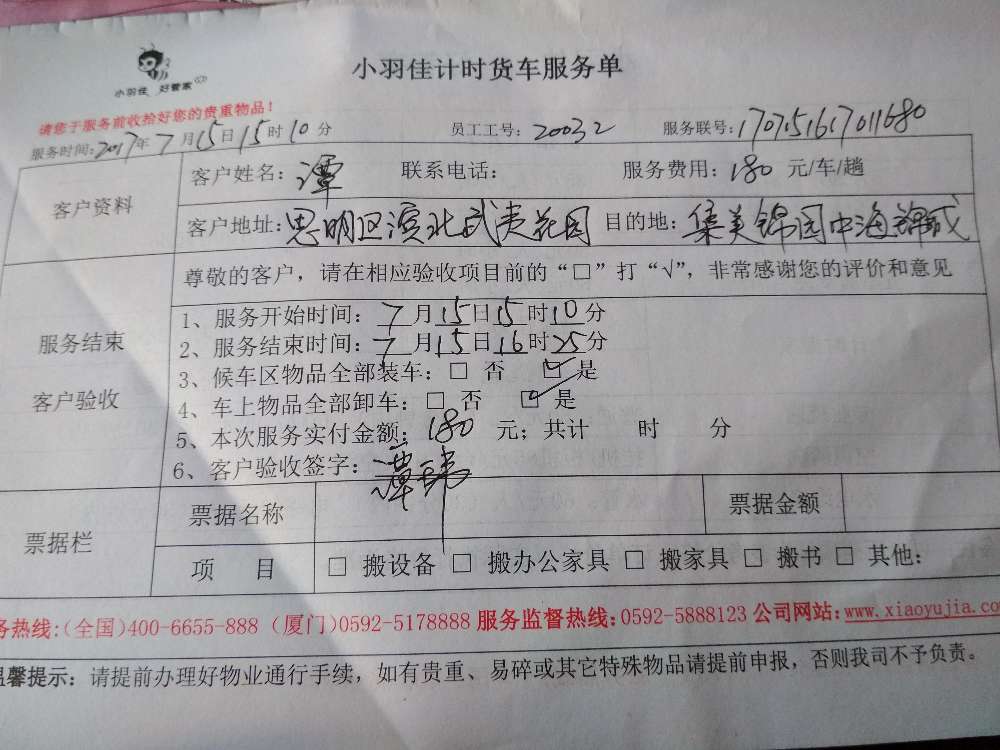 小羽佳计时货车服务单
小羽佳 好管家
请您于服务前收拾好您的贵重物品！
服务时间:2017年7月15日15时10分 员工工号: 20032 服务联号:170715161701​1680
客户资料
客户姓名: 谭 联系电话: 服务费用: 180 元/车/趟
客户地址: 思明区滨北武夷花园 目的地: 集美锦园中海锦城
服务结束
客户验收
尊敬的客户，请在相应验收项目前的“□”打“√”，非常感谢您的评价和意见
1、服务开始时间: 7月15日15时10分
2、服务结束时间: 7月15日16时25分
3、候车区物品全部装车: □ 否 ☑ 是
4、车上物品全部卸车: □ 否 ☑ 是
5、本次服务实付金额: 180 元; 共计 时 分
6、客户验收签字: 谭
票据栏
票据名称 票据金额
项 目 □ 搬设备 □ 搬办公家具 □ 搬家具 □ 搬书 □ 其他:
务热线:(全国)400-6655-888 (厦门)0592-5178888 服务监督热线:0592-5888123 公司网站:www.xiaoyujia.co
温馨提示: 请提前办理好物业通行手续，如有贵重、易碎或其它特殊物品请提前申报，否则我司不予负责。